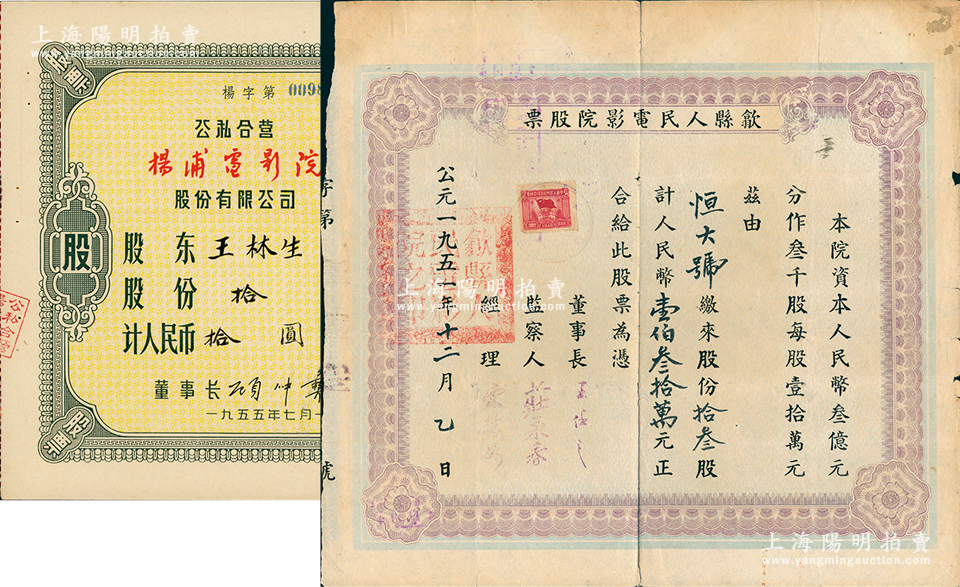 上海陽明拍賣
www.yangmingauction.com
股票
楊字第 0098
公私合营
揚浦電影院
股份有限公司
股
股东 王林生
股份 拾
计人民币 拾 圓
董事长
一九五五年七月一
股票
股票
公私合
歙縣人民電影院股票
本院資本人民幣叁億元
分作叁千股每股壹拾萬元
茲由
恒大號繳來股份拾叁股
計人民幣壹伯叁拾萬元正
合給此股票為憑
董事長
監察人
經理
公元一九五一年十二月乙日
字第
號
上海陽明拍賣
www.yangmingauction.com
上海陽明拍賣
www.yangmingauction.com